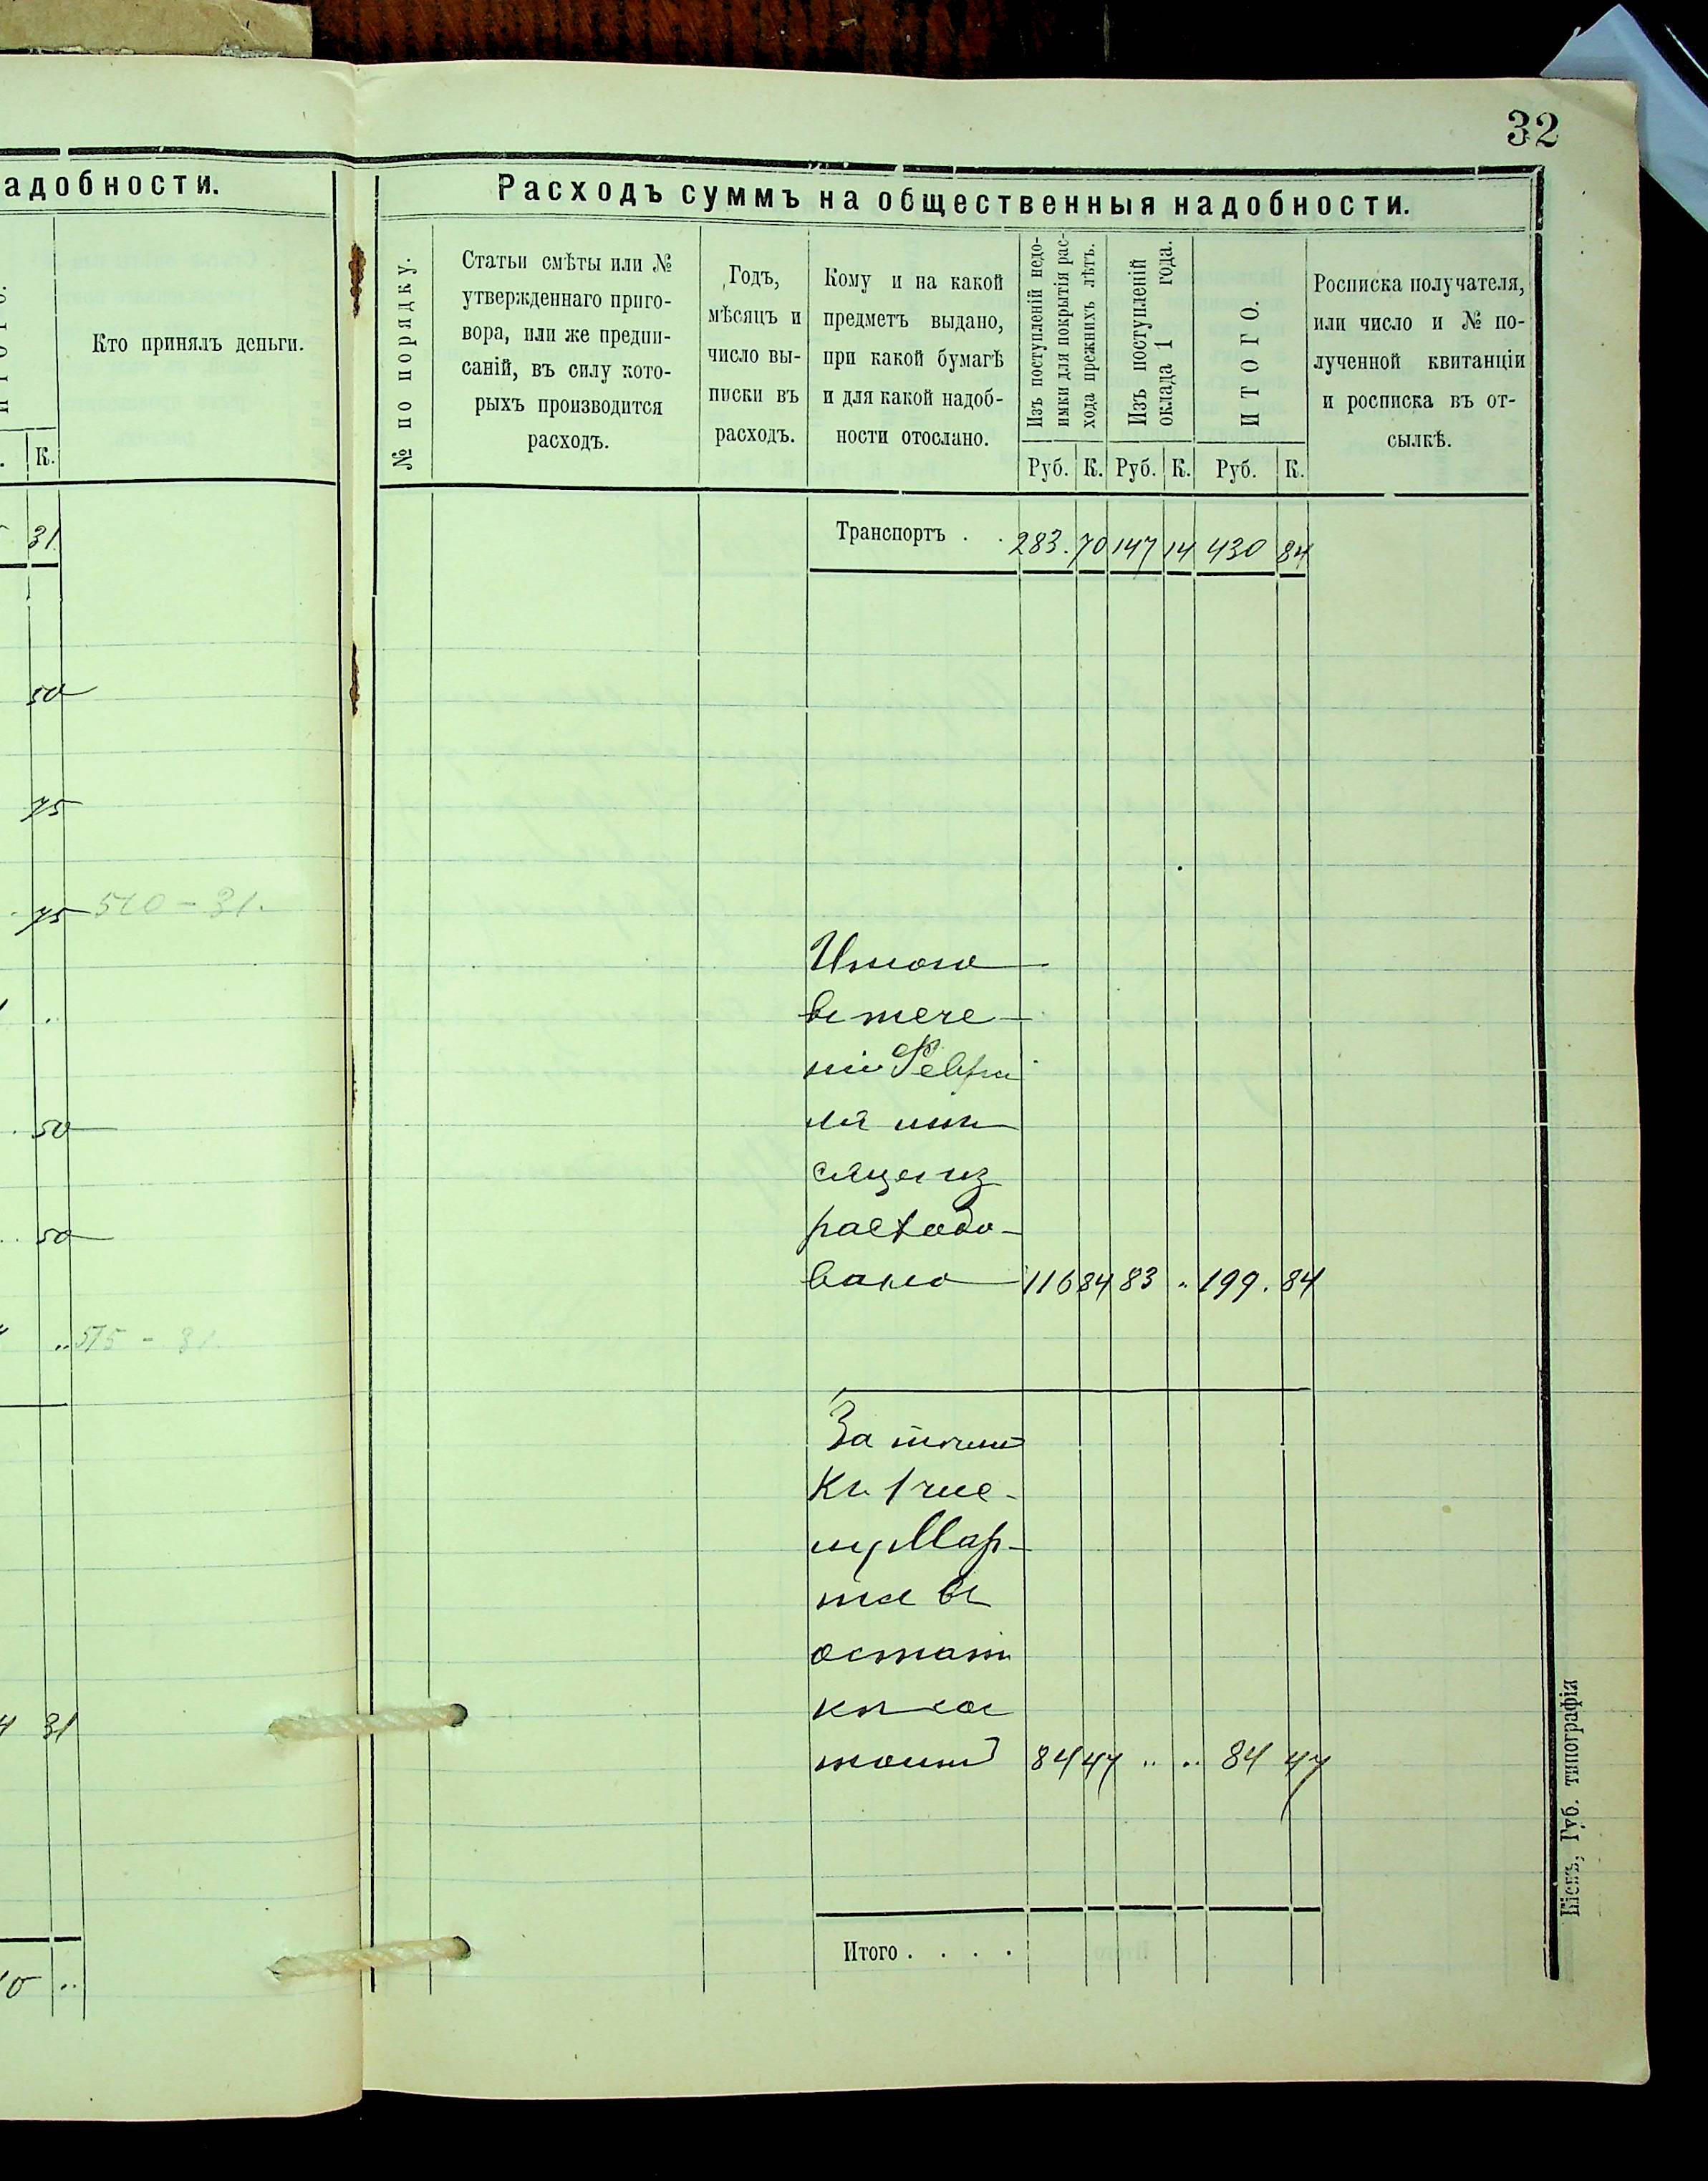 32
адобности.
Кто принялъ деньги.
К.
31
50
75
75
510 - 31.
50
50
515 - 31.
31
Расходъ суммъ на общественныя надобности.
№ по порядку.
Статьи смѣты или №
утвержденнаго приго-
вора, или же предпи-
саній, въ силу кото-
рыхъ производится
расходъ.
Годъ,
мѣсяцъ и
число вы-
писки въ
расходъ.
Кому и на какой
предметъ выдано,
при какой бумагѣ
и для какой надоб-
ности отослано.
Изъ поступленій недо-
имки для покрытія рас-
хода прежнихъ лѣтъ.
Изъ поступленій
оклада 1 года.
ИТОГО.
Росписка получателя,
или число и № по-
лученной квитанціи
и росписка въ от-
сылкѣ.
Руб. К. Руб. К. Руб. К.
Транспортъ . . 283. 70 147 14 430 84
Итого
въ тече-
ніи Февра
ля мѣ
сяца из
расходо-
вано 116 84 83 .. 199. 84
За тѣмъ
къ 1 чис-
лу Мар-
та въ
остат
кѣ со
стоитъ 84 47 .. .. 84 47
Итого . . . .
Губ. типографія